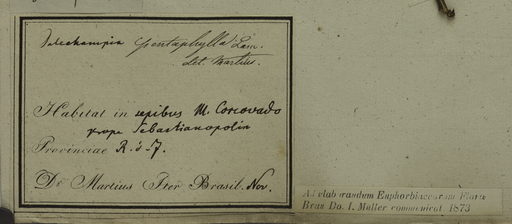 Dalechampia pentaphylla Lam.
det. Martius.
Habitat in sepibus M. Corcovado
prope Sebastianopolin
Provinciae R. d. J.
Dr Martius Iter Brasil. Nov.
Ad elab orandum Euphorbiacearum Florae
Bras Do. J. Müller communicat. 1873